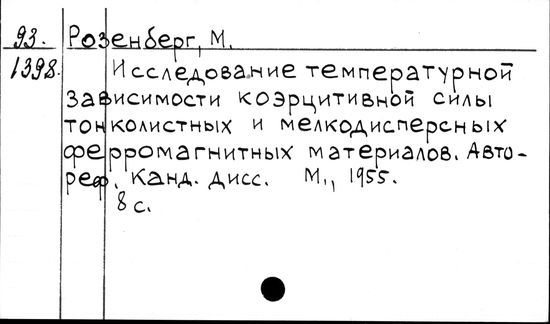 93. Розенберг, М.
1398. Исследование температурной
зависимости коэрцитивной силы
тонколистных и мелкодисперсных
ферромагнитных материалов. Авто-
реф. Канд. дисс. М., 1955.
8 с.